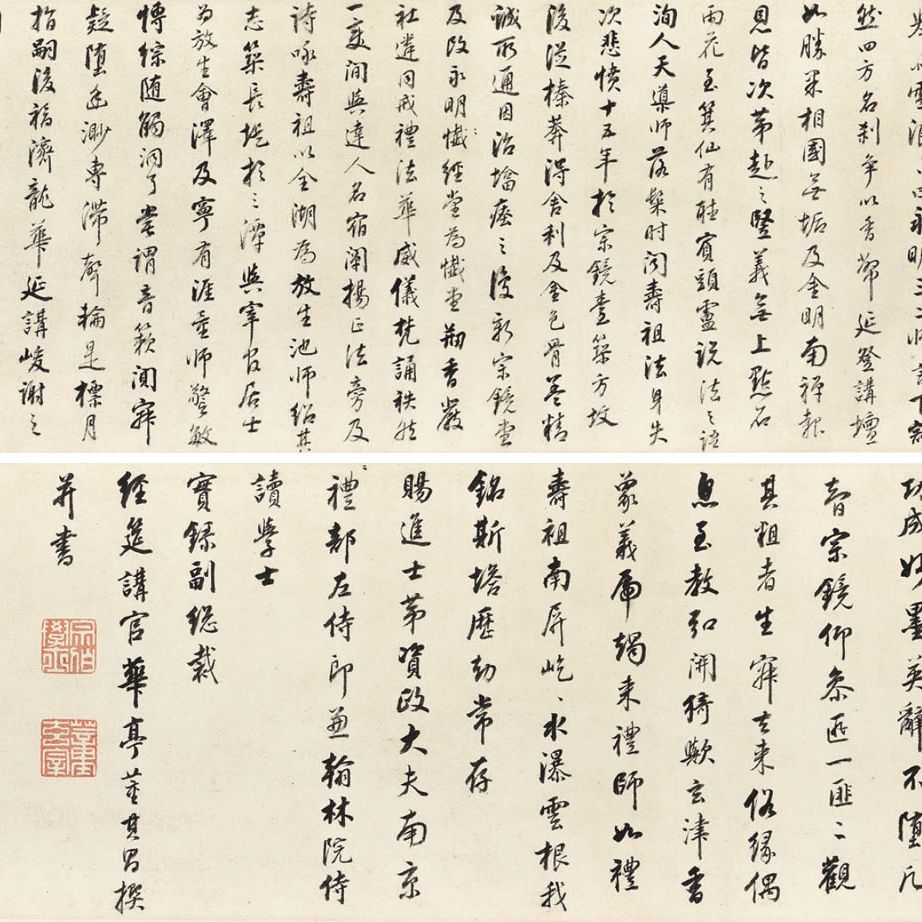 然四方名刹爭以香幣延登講壇
如勝果相國無垢及金明南禪報
恩皆次第赴之豎義無上點石
雨花至箕仙有駐賓頭盧說法之語
洵人天導師落髮時聞壽祖法身失
次悲憤十五年於宗鏡臺築方墳
後從榛莽得舍利及金色骨若精
誠所通因治塔瘞之後新宗鏡堂
及改永明懺經堂為懺堂爇香嚴
社遴同戒禮法華威儀梵誦秩然
一變間與達人名宿闡揚正法旁及
詩咏壽祖以全湖為放生池師紹其
志築長堤於之潭與宰官居士
為放生會澤及寧有涯量師警敏
博綜隨觸洞了嘗謂音籟間寂
疑墮玄渺專滯聲輪是標月
指嗣後福濟龍華延講峻謝之
功成如墨英辭不墮凡
音宗鏡仰參匝一匪二觀
其粗者生寂去來俗緣偶
息至教弘開猗歟玄津香
象義虎竭來禮師如禮
壽祖南屏屹屹水瀑雲根我
銘斯塔歷劫常存
賜進士第資政大夫南京
禮部左侍郎兼翰林院侍
讀學士
實錄副總裁
經筵講官華亭董其昌撰
并書